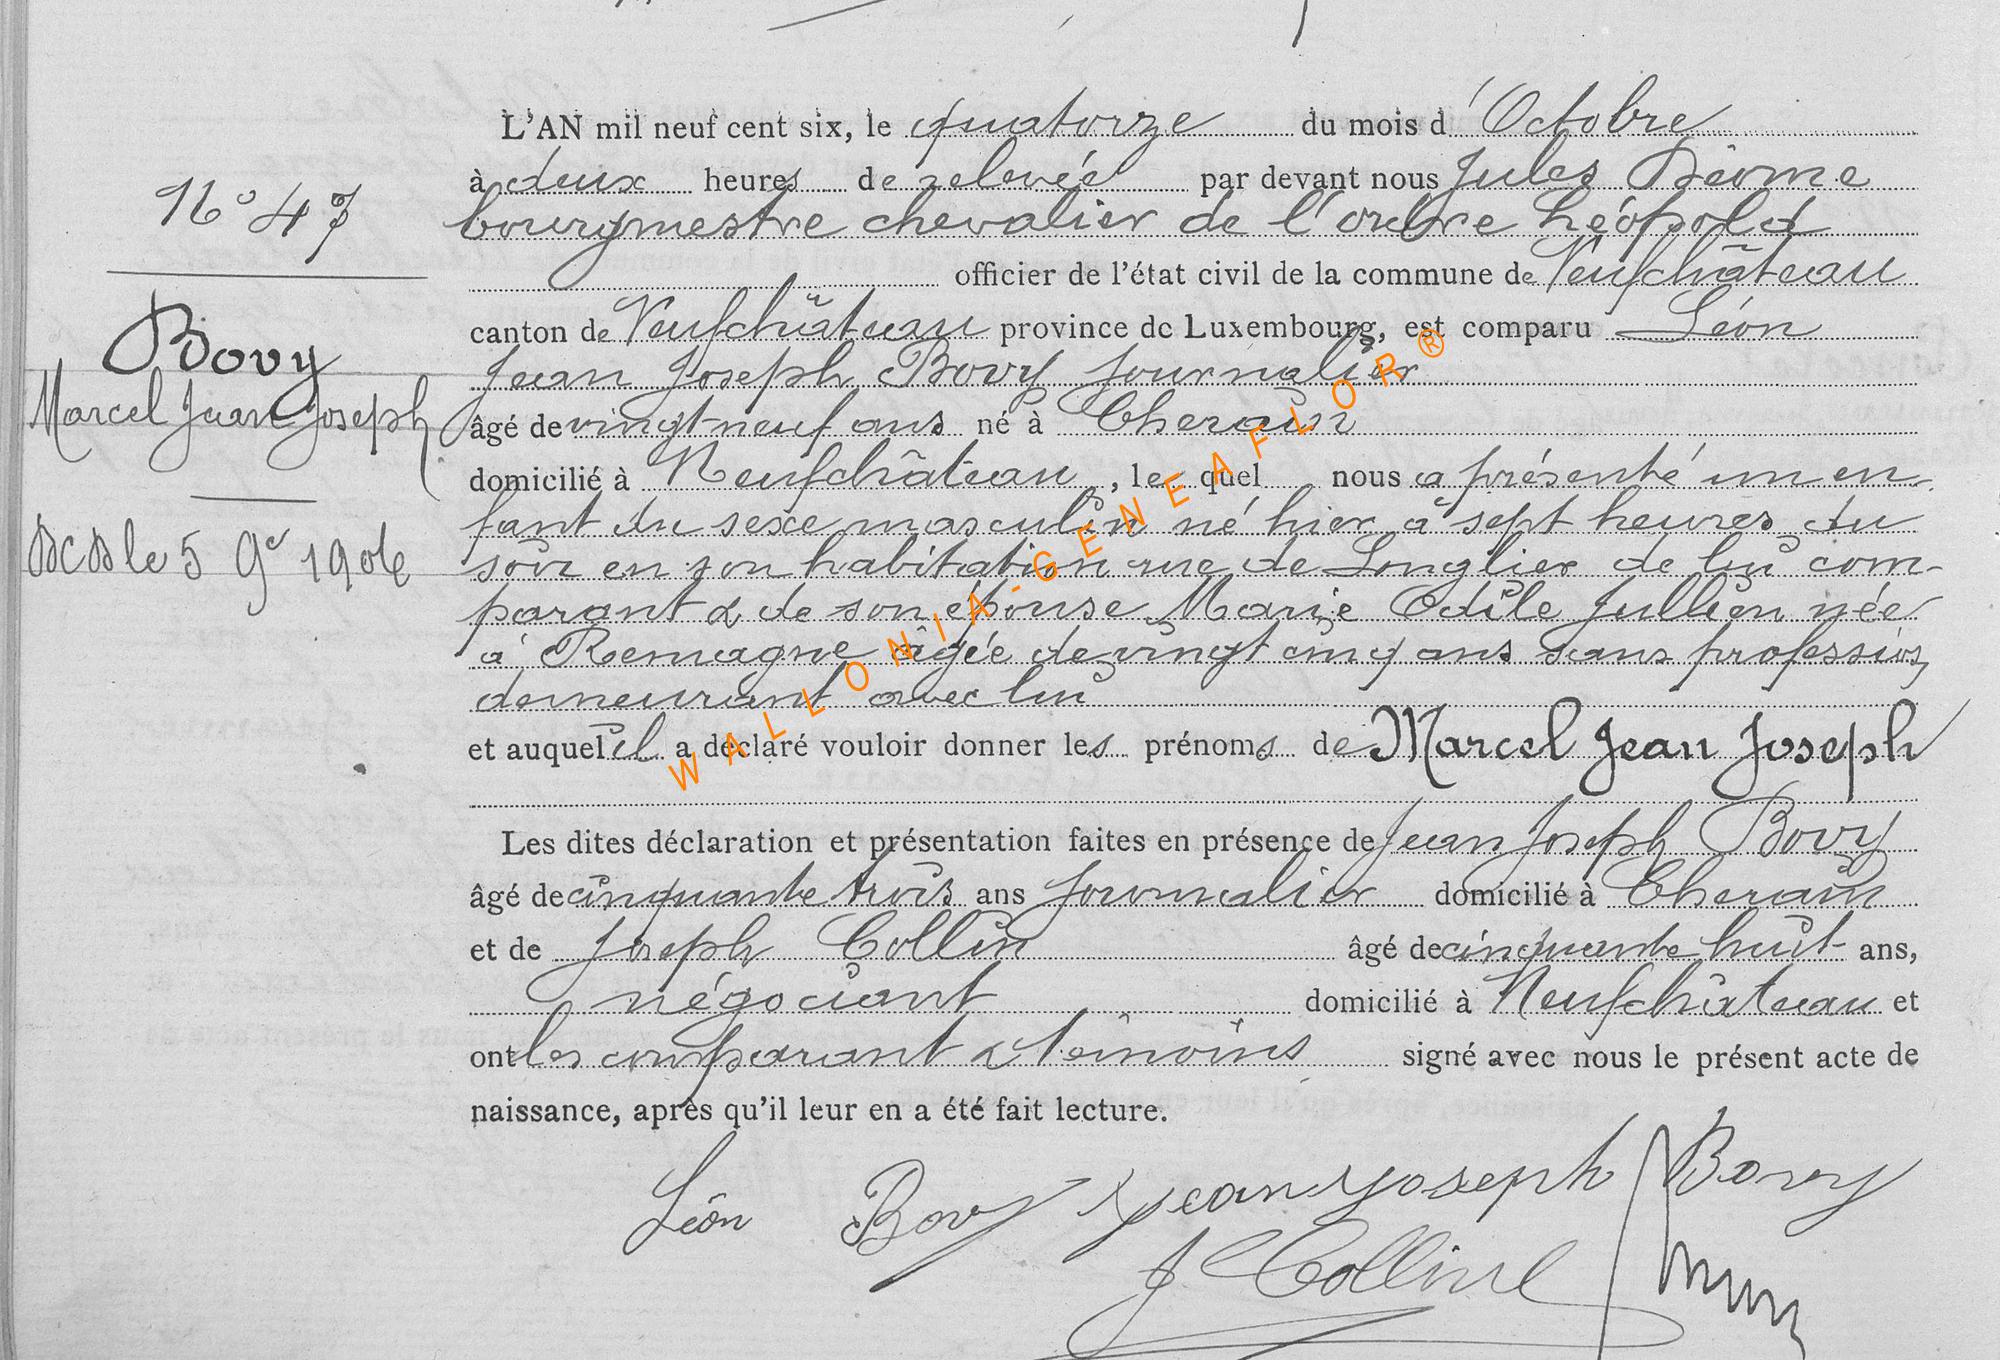 N° 47
Bovy
Marcel Jean Joseph
DCD le 5 9e 1906
L'AN mil neuf cent six, le quatorze du mois d'Octobre
à deux heures de relevée par devant nous Jules
bourgmestre chevalier de l'ordre Léopold
officier de l'état civil de la commune de Neufchâteau
canton de Neufchâteau province de Luxembourg, est comparu Léon
Jean Joseph Bovy journalier
âgé de vingt neuf ans né à Cherain
domicilié à Neufchâteau, le quel nous a présenté un en-
fant du sexe masculin né hier à sept heures du
soir en son habitation rue de Longlier de lui com-
parant & de son épouse Marie Odile Jullien née
à Remagne âgée de vingt cinq ans sans profession
demeurant avec lui
et auquel il a déclaré vouloir donner les prénoms de Marcel Jean Joseph
Les dites déclaration et présentation faites en présence de Jean Joseph Bovy
âgé de cinquante trois ans journalier domicilié à Cherain
et de Joseph Collin âgé de cinquante huit ans,
négociant domicilié à Neufchâteau et
ont les comparant & témoins signé avec nous le présent acte de
naissance, après qu'il leur en a été fait lecture.
Léon Bovy Jean Joseph Bovy
J Collin
WALLONIA-GENEAFLOR®